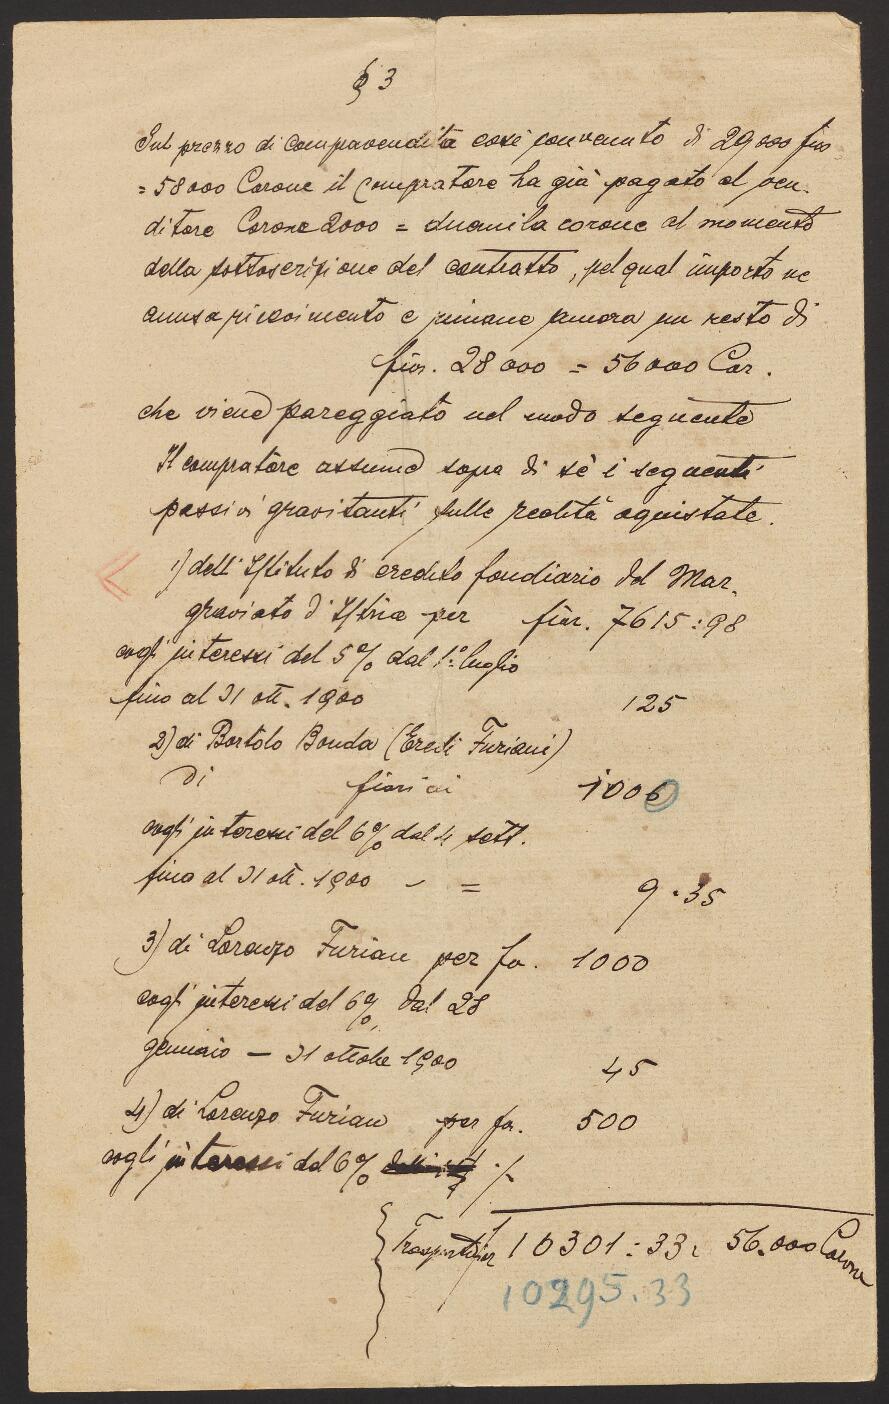 § 3
Sul prezzo di compravendita così convenuto di 29000 fior
= 58000 Corone il compratore ha già pagato al ven-
ditore Corone 2000 = duemila corone al momento
della sottoscrizione del contratto, pel qual importo ne
annsa ricevimento e rimane ancora un resto di
fior. 28000 = 56000 Cor.
che viene pareggiato nel modo seguente
Il compratore assume sopra di sè i seguenti
passivi gravitanti sulle realità aquistate.
1) dell'Istituto di credito fondiario del Mar-
graviato d'Istria per fior. 7615:98
cogli interessi del 5% dal 1º luglio
fino al 31 ott. 1900 125
2) di Bortolo Bonda (Eredi Furiani)
di fiorini 1006
cogli interessi del 6% dal 4 sett.
fino al 31 ott. 1900 - = 9.35
3) di Lorenzo Furian per fn. 1000
cogli interessi del 6% dal 28
gennaio — 31 ottobre 1900 45
4) di Lorenzo Furian per fn. 500
cogli interessi del 6% ./.
Trasporto per 10301:33: 56.000 Corone
10295.33